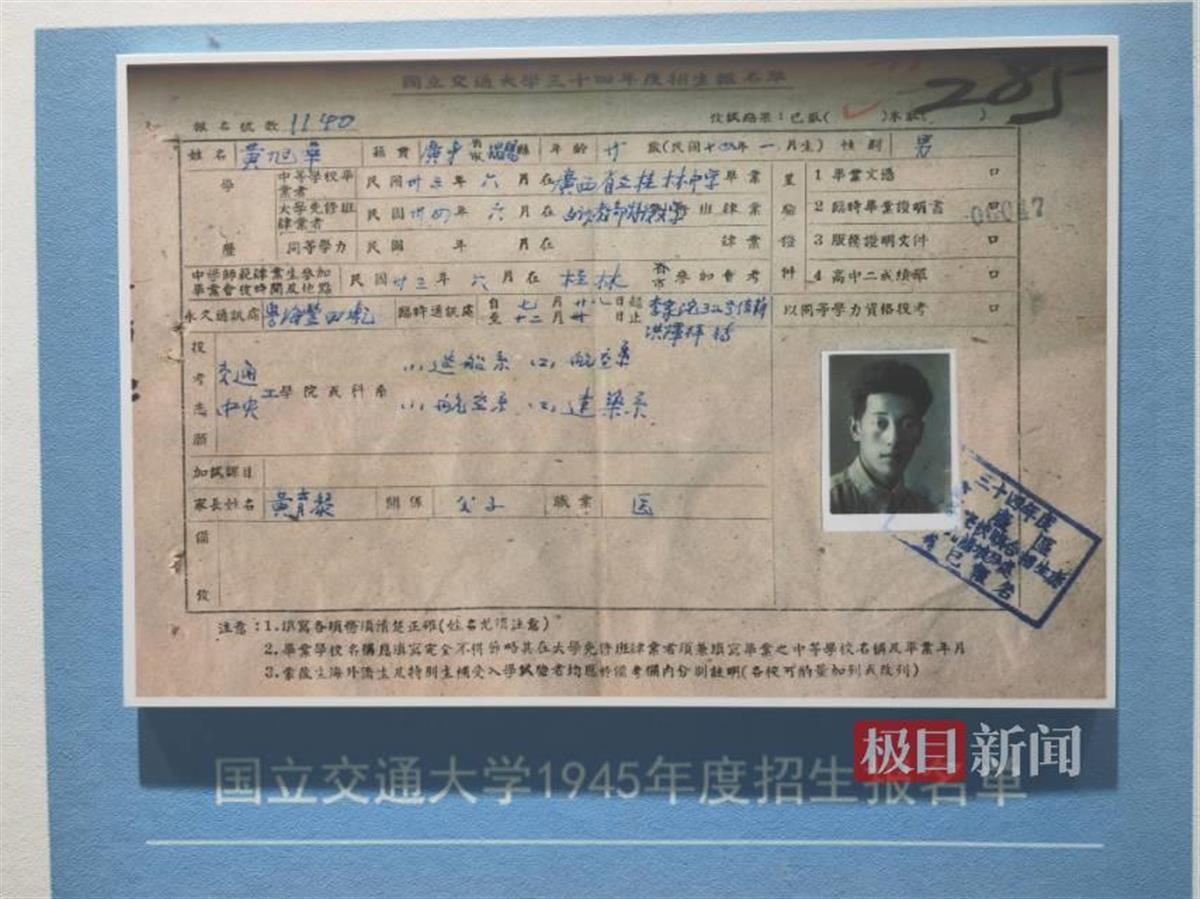 國立交通大學三十四年度招生報名單
285
報名號數 1140 攷試結果:已取( )未取( )
姓名 黃旭華 籍貫 廣東 省市 揭陽 縣 年齡 廿 歲(民國十四年一月生) 性別 男
學歷 中等學校畢業者 民國卅三年六月在廣西省立桂林中学畢業
大學先修班肄業者 民國卅四年六月在 班肄業
同等學力 民國 年 月在 肄業
中學師範肄業生參加畢業會攷時間及地點 民國卅三年六月在桂林 省市 參加會考
永久通訊處 粵海豐田墘 臨時通訊處 自七月廿八日起 至十二月廿日止
呈驗證件 1 畢業文憑 口
2 臨時畢業證明書 口
3 服務證明文件 口
4 高中二成績單 口
以同等學力資格投考 口
投考志願 交通 工學院或科系 (1)造船系 (2)航空系
中央 (1)航空系 (2)建築系
加試課目
家長姓名 關係 父子 職業 医
備攷
三十四年度
注意:1.填寫各項務須清楚正確(姓名尤須注意)
2.畢業學校名稱應填寫完全不得節略其在大學先修班肄業者須兼填寫畢業之中等學校名稱及畢業年月
3.蒙藏生海外僑生及特別生補受入學試驗者均應於備考欄內分別註明(各校可酌量加列或改列)
极目新闻
国立交通大学1945年度招生报名单